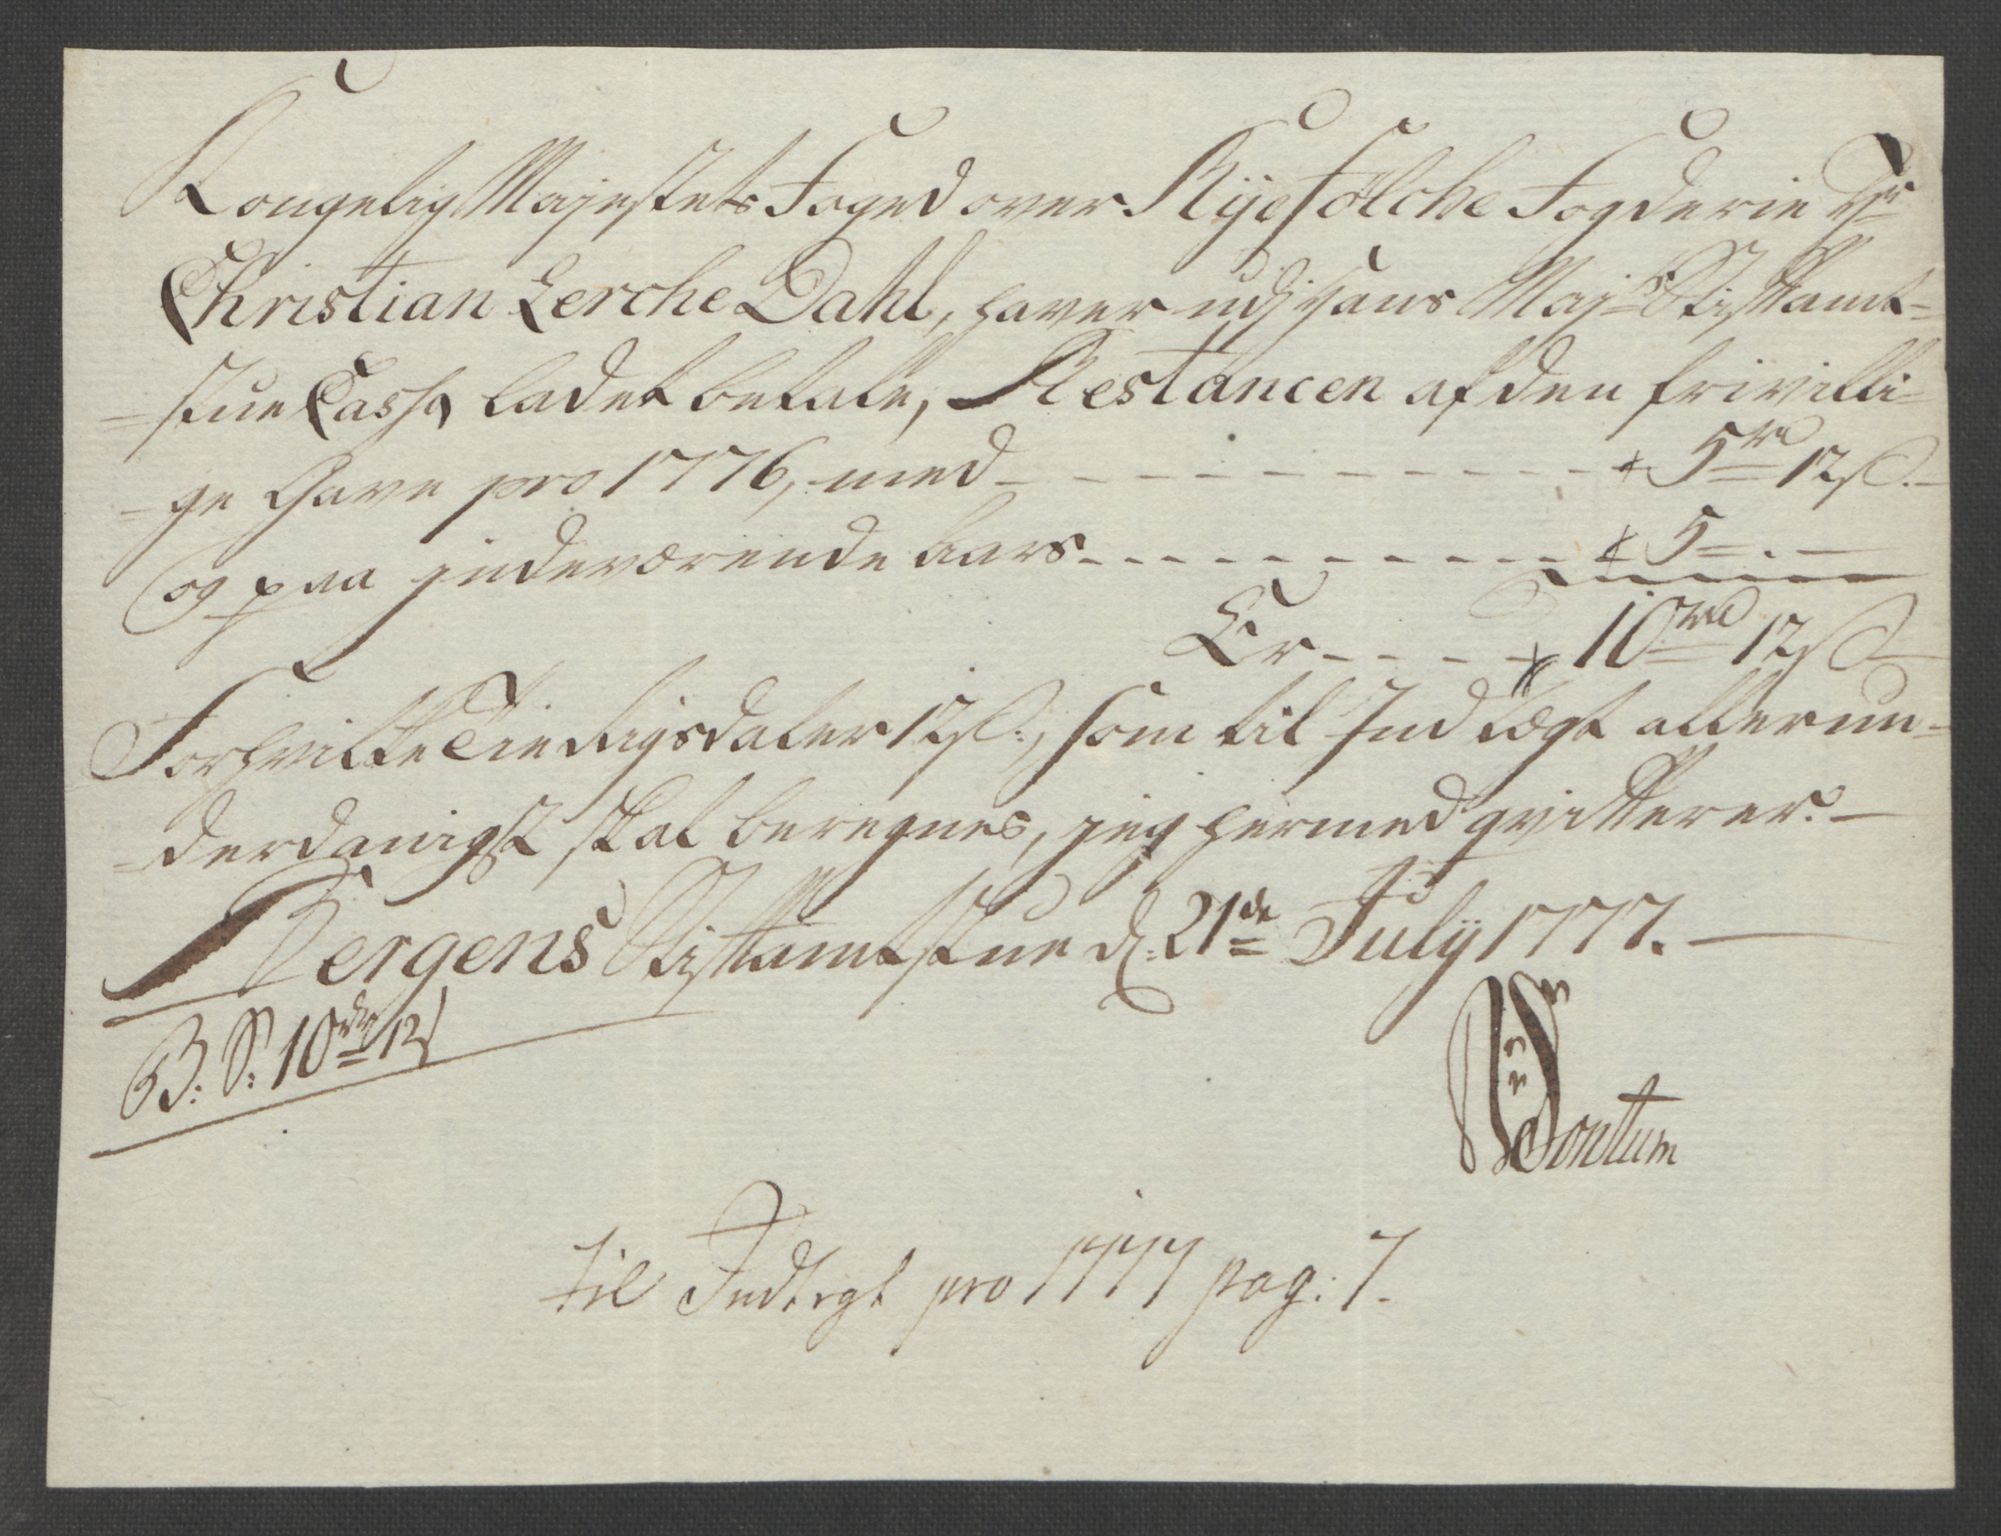 Kongelig Majestets Foged over Ryefölche Fogderie Hr
Christian Lerche Dahl, haver udj hans Maj:s Stiftamt-
-stue Cassa ladet betale, Restancen af den frivilli-
-ge Gave pro 1776, med - - - - - - - - - 5 rd 12 s.
og paa indeværende Aars - - - - - - - - - 5 = . -
Er - - - - 10 rd 12 s
For hvilke Tie Rigsdaler 12 s., som til Indtægt allerun-
-derdanigst skal beregnes, jeg hermed qvitterer. -
Bergens Stiftamtstue d: 21de July 1777.
B: S: 10 rd 12 s
Fontum
til Indtegt pro 1777 pag: 7.